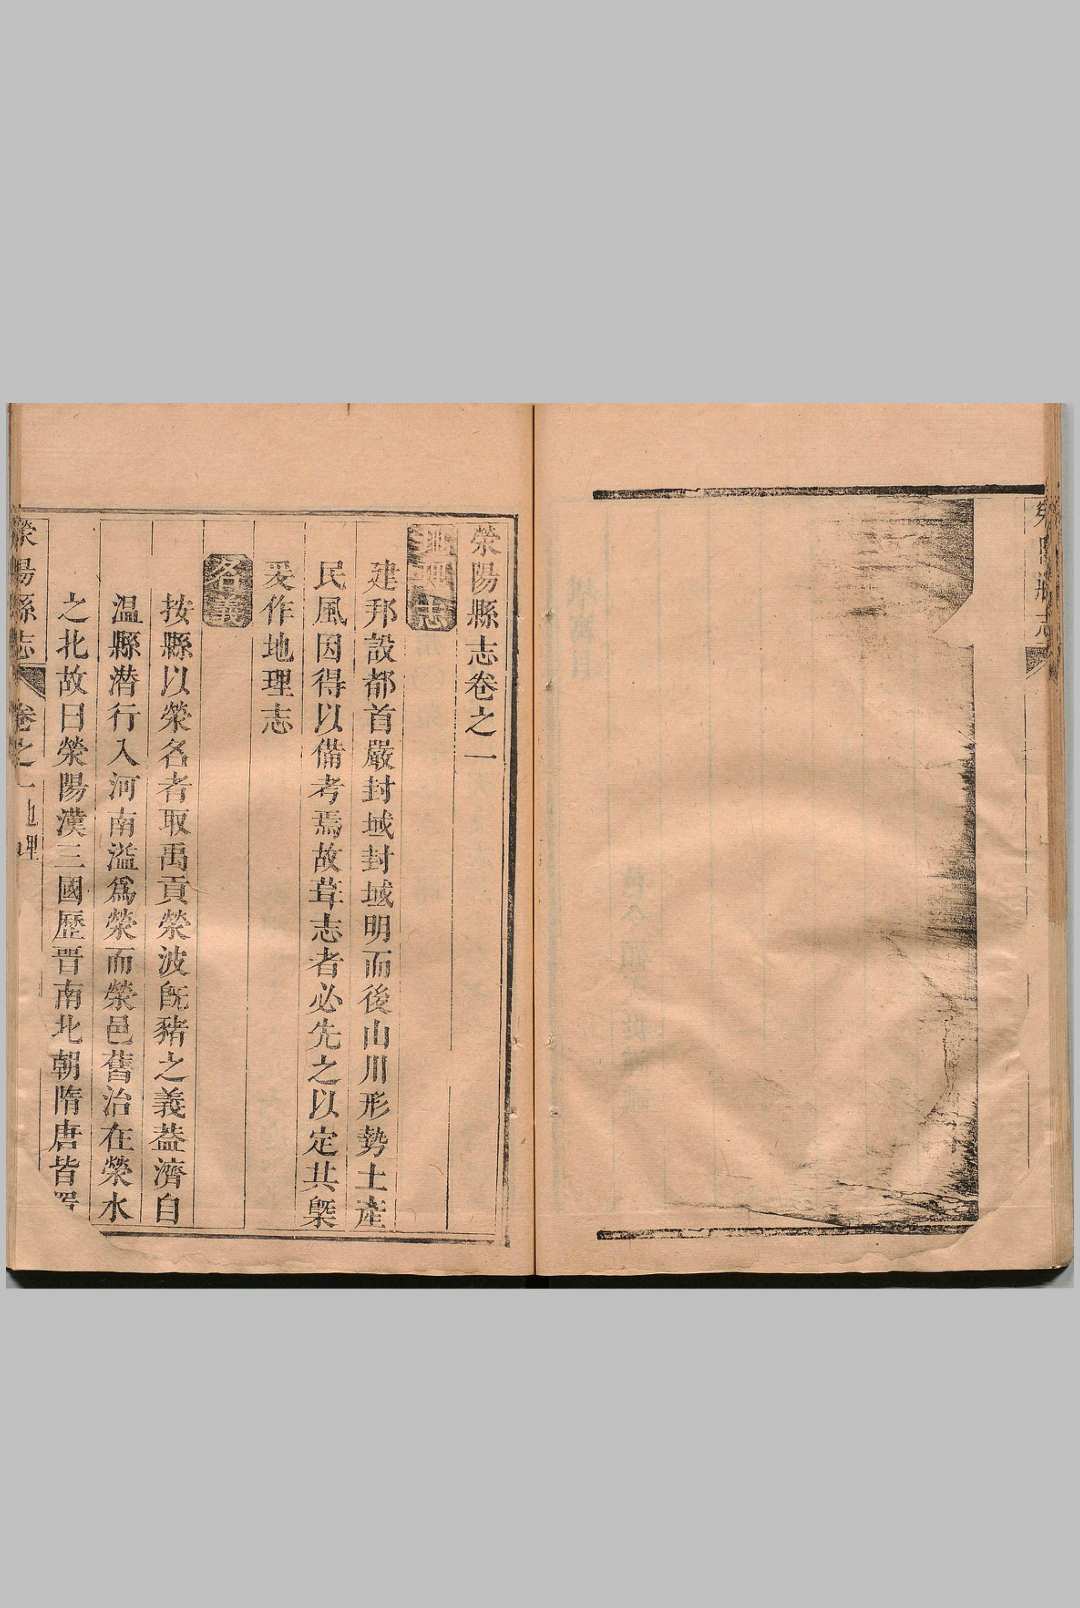 滎陽縣志卷之一
地理志
建邦設都首嚴封域封域明而後山川形勢土產
民風因得以備考焉故葺志者必先之以定其槩
爰作地理志
名義
按縣以滎名者取禹貢滎波旣豬之義葢濟自
温縣潛行入河南溢爲滎而滎邑舊治在滎水
之北故曰滎陽漢三國歷晉南北朝隋唐皆
滎陽縣志
卷之一